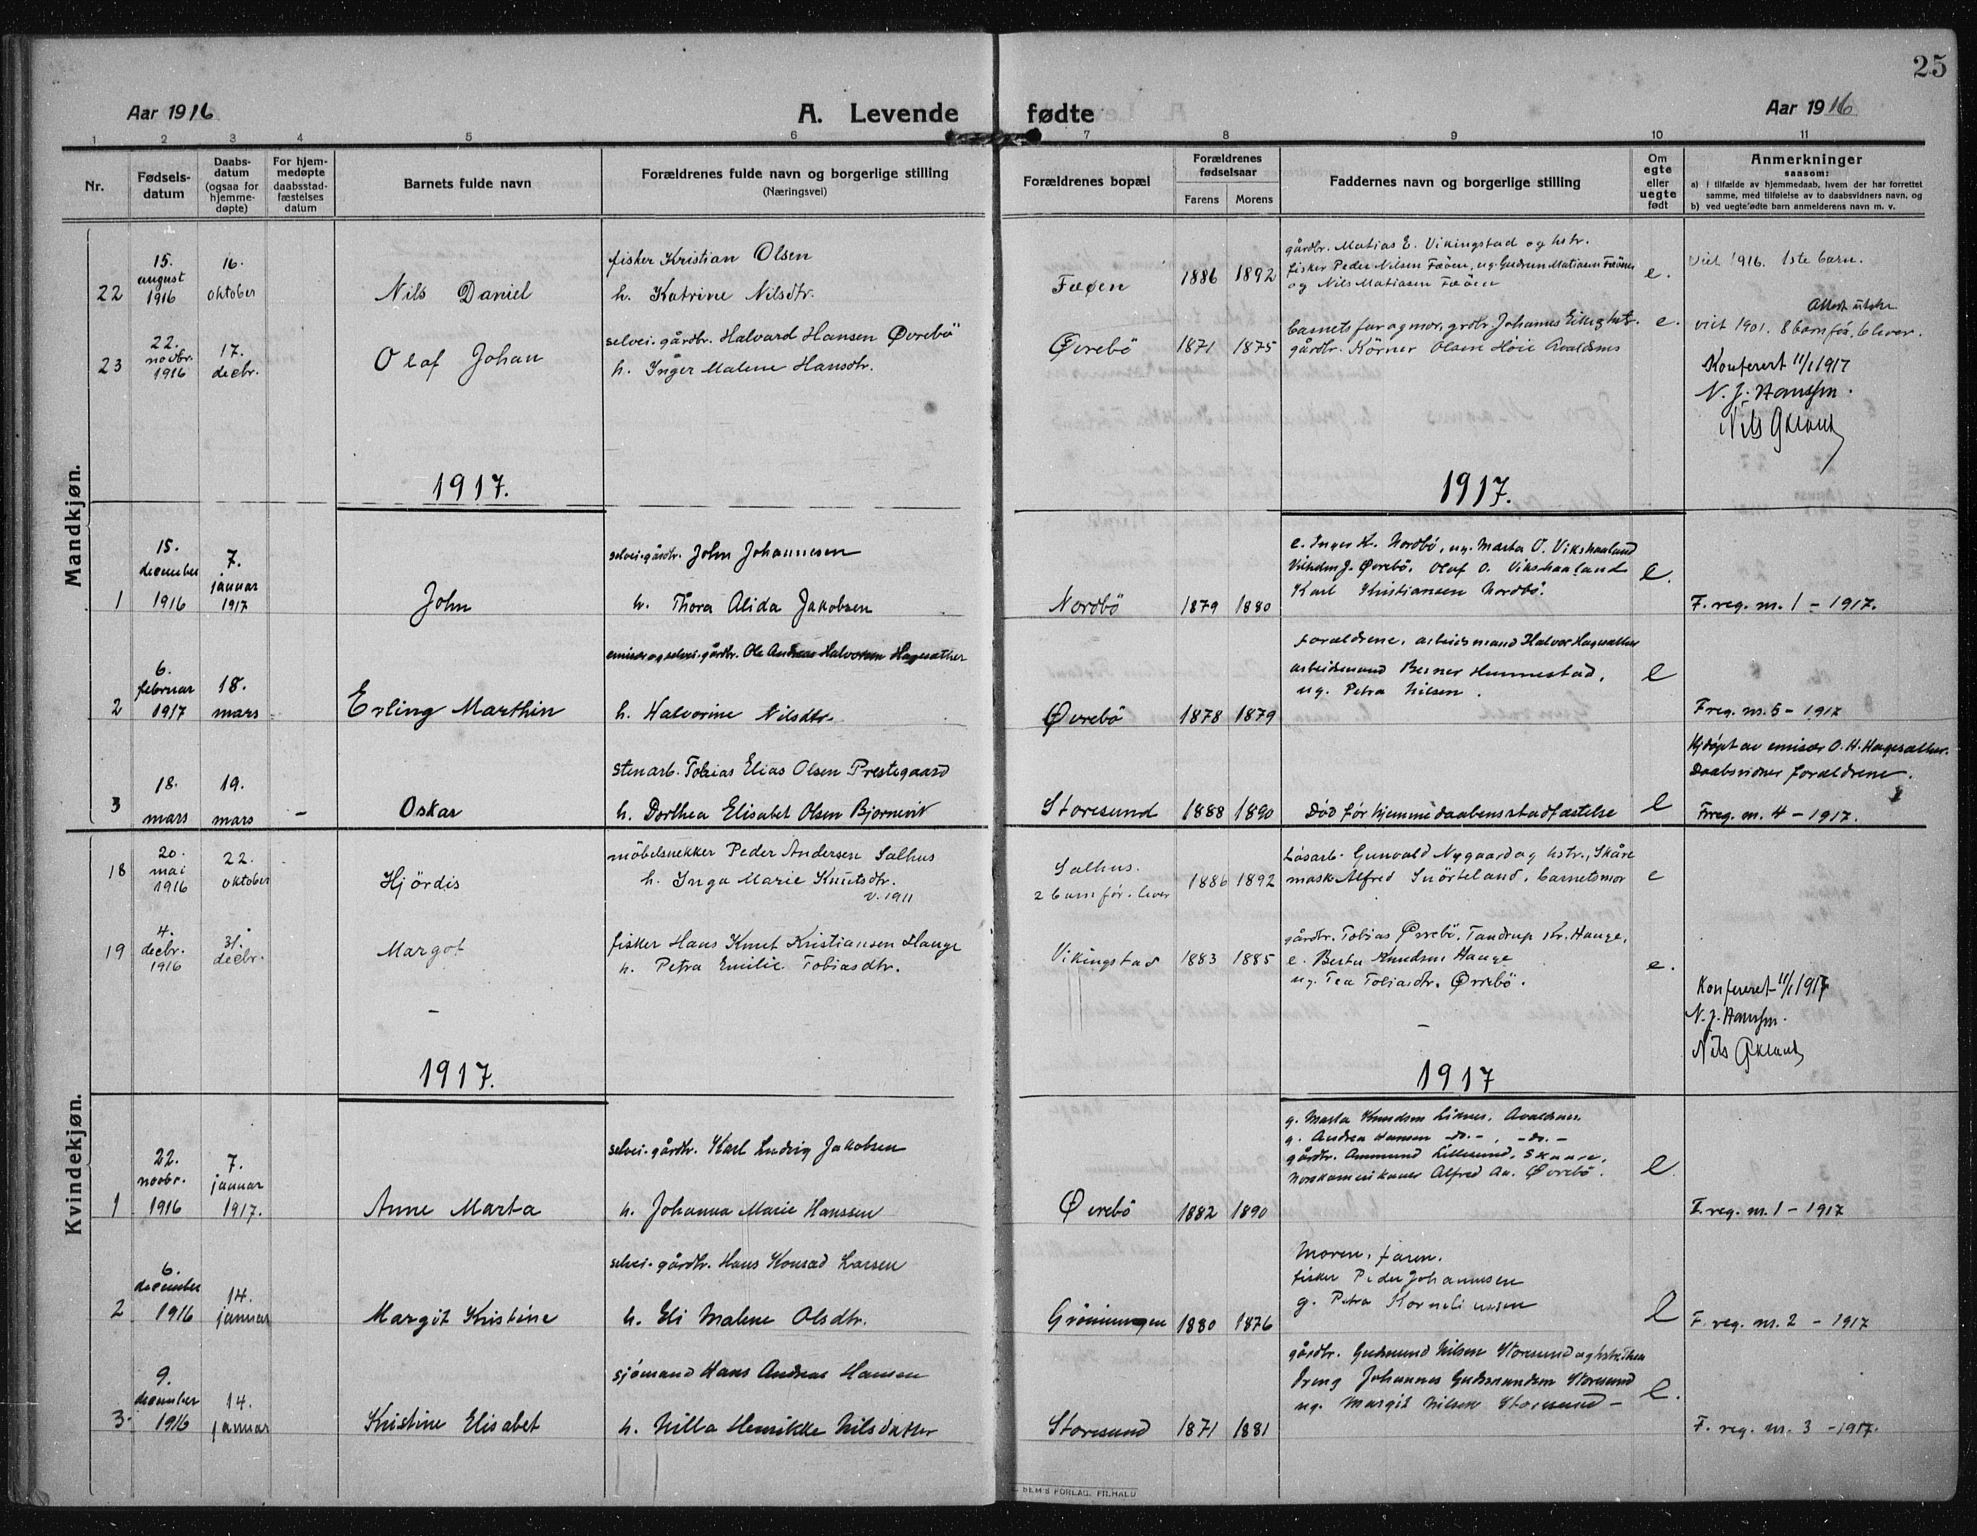 25
Aar 1916
A. Levende fødte
Aar 1916
1 2 3 4 5 6 7 8 9 10 11
Nr.
Fødsels-
datum
Daabs-
datum
(ogsaa for
hjemme-
døpte)
For hjem-
medøpte
daabsstad-
fæstelses
datum
Barnets fulde navn
Forældrenes fulde navn og borgerlige stilling
(Næringsvei)
Forældrenes bopæl
Forældrenes
fødselsaar
Farens Morens
Faddernes navn og borgerlige stilling
Om
egte
eller
uegte
født
Anmerkninger
saasom:
a) i tilfælde av hjemmedaab, hvem der har forrettet
samme, med tilføielse av to daabsvidners navn, og
b) ved uegtefødte barn anmelderens navn m. v.
Mandkjøn.
22
15.
august
1916
16.
oktober
Nils Daniel
fisker Kristian Olsen
h. Katrine Nilsdtr.
Fæøen
1886 1892
gårdbr. Matias E. Vikingstad og hstr.
fisker Peder Nilsen Fæöen, ug. Gudrun Matiasen Fæöen
og Nils Matiasen Fæöen
e.
viet 1916. 1ste barn.
23
22.
novbr.
1916
17.
decbr.
Olaf Johan
selvei. gårdbr. Halvard Hansen Øvrebö
h. Inger Malene Hansdtr.
Øvrebö
1871 1875
barnets far og mor, grdbr. Johannes hstr.
gårdbr. Körner Olsen Höie Avaldsnes
e.
Attest utstr.
viet 1901. 8 barn för, 6 lever.
Konferert 11/1 1917
N. J. Hanssen.
Nils
1917.
1917.
1
15.
december
1916
7.
januar
1917
John
selvei. gårdbr. John Johannesen
h. Thora Alida Jakobsen
Nordbö
1879 1880
e. Inger K. Nordbö, ug. Marta O. Vikshaaland
Vilhelm J. Øvrebö, Olaf O. Vikshaaland
Karl Kristiansen Nordbö.
e.
F. reg. nr. 1 - 1917.
2
6.
februar
1917
18.
mars
-
Erling Marthin
emisær og selvei. gårdbr. Ole Andreas Halvorsen Hagesæther
h. Halvorine Nilsdtr.
Øvrebö
1878 1879
Forældrene, arbeidsmand Halvor Hagesæther
arbeidsmand Berner Hemmestad,
ug. Petra Nilsen.
e
F. reg. nr. 5 - 1917
3
18.
mars
19.
mars
-
Oskar
Stenarb. Tobias Elias Olsen Prestegaard
h. Dorthea Elisabet Olsen Bjornevik
Storesund
1888 1890
Död för hjemmedaabens stadfæstelse
e
Hjdöpt av emisær O. H. Hagesæther.
Daabsvidner forældrene.
F. reg. nr. 4 - 1917.
Kvindekjøn.
18
20.
mai
1916
22.
oktober
Hjördis
möbelsnekker Peder Andersen Salhus
h. Inga Marie Knutsdtr.
v. 1911
Salhus.
2 barn för. lever
1886 1892
Lösarb. Gunvald Nygaard og hstr., Skåre
mask. Alfred Snörteland, barnets mor
e
19
4.
decbr.
1916
31.
decbr.
Margot
fisker Hans Knut Kristiansen Hauge
h. Petra Emilie Tobiasdtr.
Vikingstad
1883 1885
gårdbr. Tobias Øvrebö, Tandrup Kr. Hauge,
e. Berta Knudsen Hauge
ug. Tea Tobiasdtr. Øvrebö.
e.
Konfereret 11/1 1917
N. J. Hanssen.
Nils
1917.
1917
1
22.
novbr.
1916
7.
januar
1917.
Anne Marta
selvei. gårdbr. Karl Ludvig Jakobsen
h. Johanna Marie Hanssen
Øvrebö
1882 1890
g. Marta Knudsen Liknes, Avaldsnes.
g. Andrea Hansen -do.-, -do.-
gårdbr. Ammund Lillesund, Skaare,
Norskamerikaner Alfred Aa. Øvrebö.
e.
F. reg. nr. 1 - 1917
2
6.
december
1916
14.
januar
Margit Kristine
selvei. gårdbr. Hans Konrad Larsen
h. Eli Malene Olsdtr.
Grönningen
1880 1876
Moren, faren.
fisker Peder Johannesen
g. Petra Korneliussen
e
F. reg. nr. 2 - 1917
3.
9.
december
1916
14.
januar
Kristine Elisabet
sjömand Hans Andreas Hansen
h. Nilla Henrikke Nilsdatter
Storesund
1871 1881
gårdbr. Gudmund Nilsen Storesund og hstr.
dreng Johannes Gudmundsen Storesund
ug. Margit Nilsen Storesund -
e.
F. reg. nr. 3 - 1917.
SEM'S FORLAG, FR.HALD